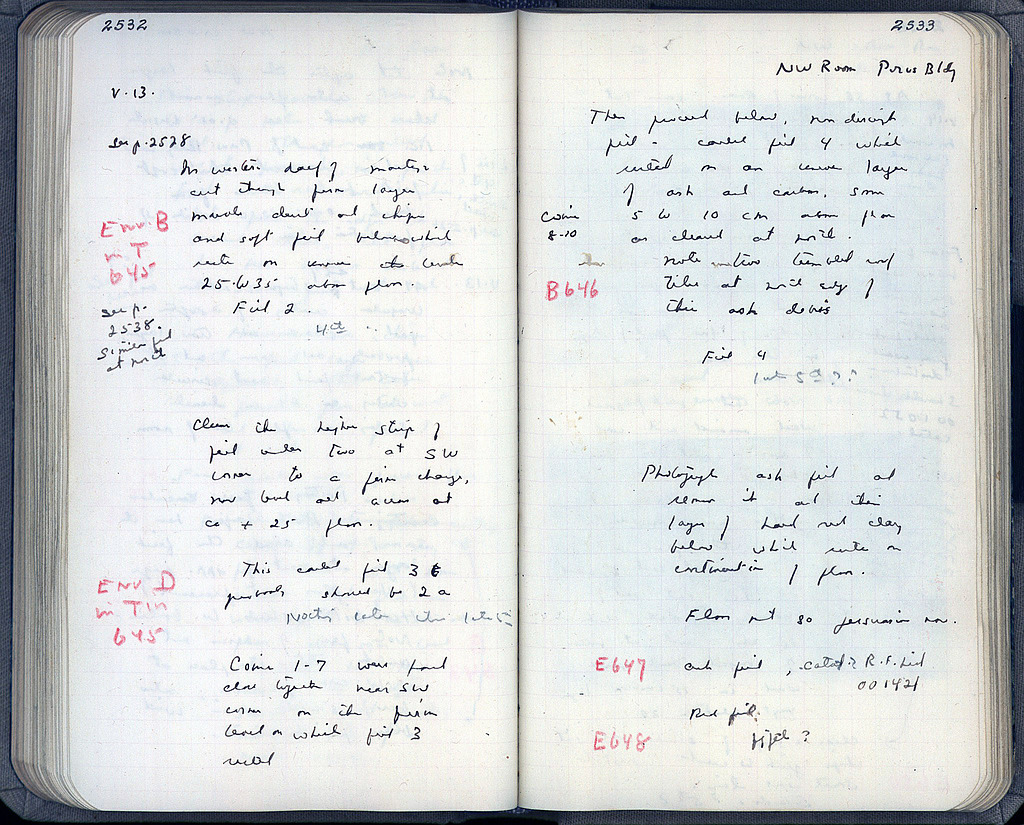 2532
V.13.
see p. 2528
In western day of
cut through firm layer
marble dust and chips
and soft fill below which
rests on uneven level
25-35 above floor.
Fill 2
4th
ENV. B
in T
645
see p.
2538.
Similar fill
at north
Clear the higher strip of
fill under two at SW
corner to a firm change,
now level all across at
ca + 25 floor.
This called fill 3
probably should be 2a
Nothing later than late 5th
ENV D
in Tin
645
Coins 1-7 were found
close together near SW
corner on the firm
level on which fill 3
rested
2533
NW Room Poros Bldg
Then proceed below, 
fill - called fill 4 which
rested on an uneven layer
of ash and carbon, some
5 to 10 cm above floor
as cleared at north.
Coins
8-10
note two tumbled roof
tiles at north edge of
this ash debris
B646
Fill 4
late 5th ??
Photograph ash fill and
remove it and thin
layer of hard red clay
below which rests on
continuation of floor.
Floor not so persuasive now.
E647
ash fill, R.F. lid
001421
Red fill.
E648
fifth?